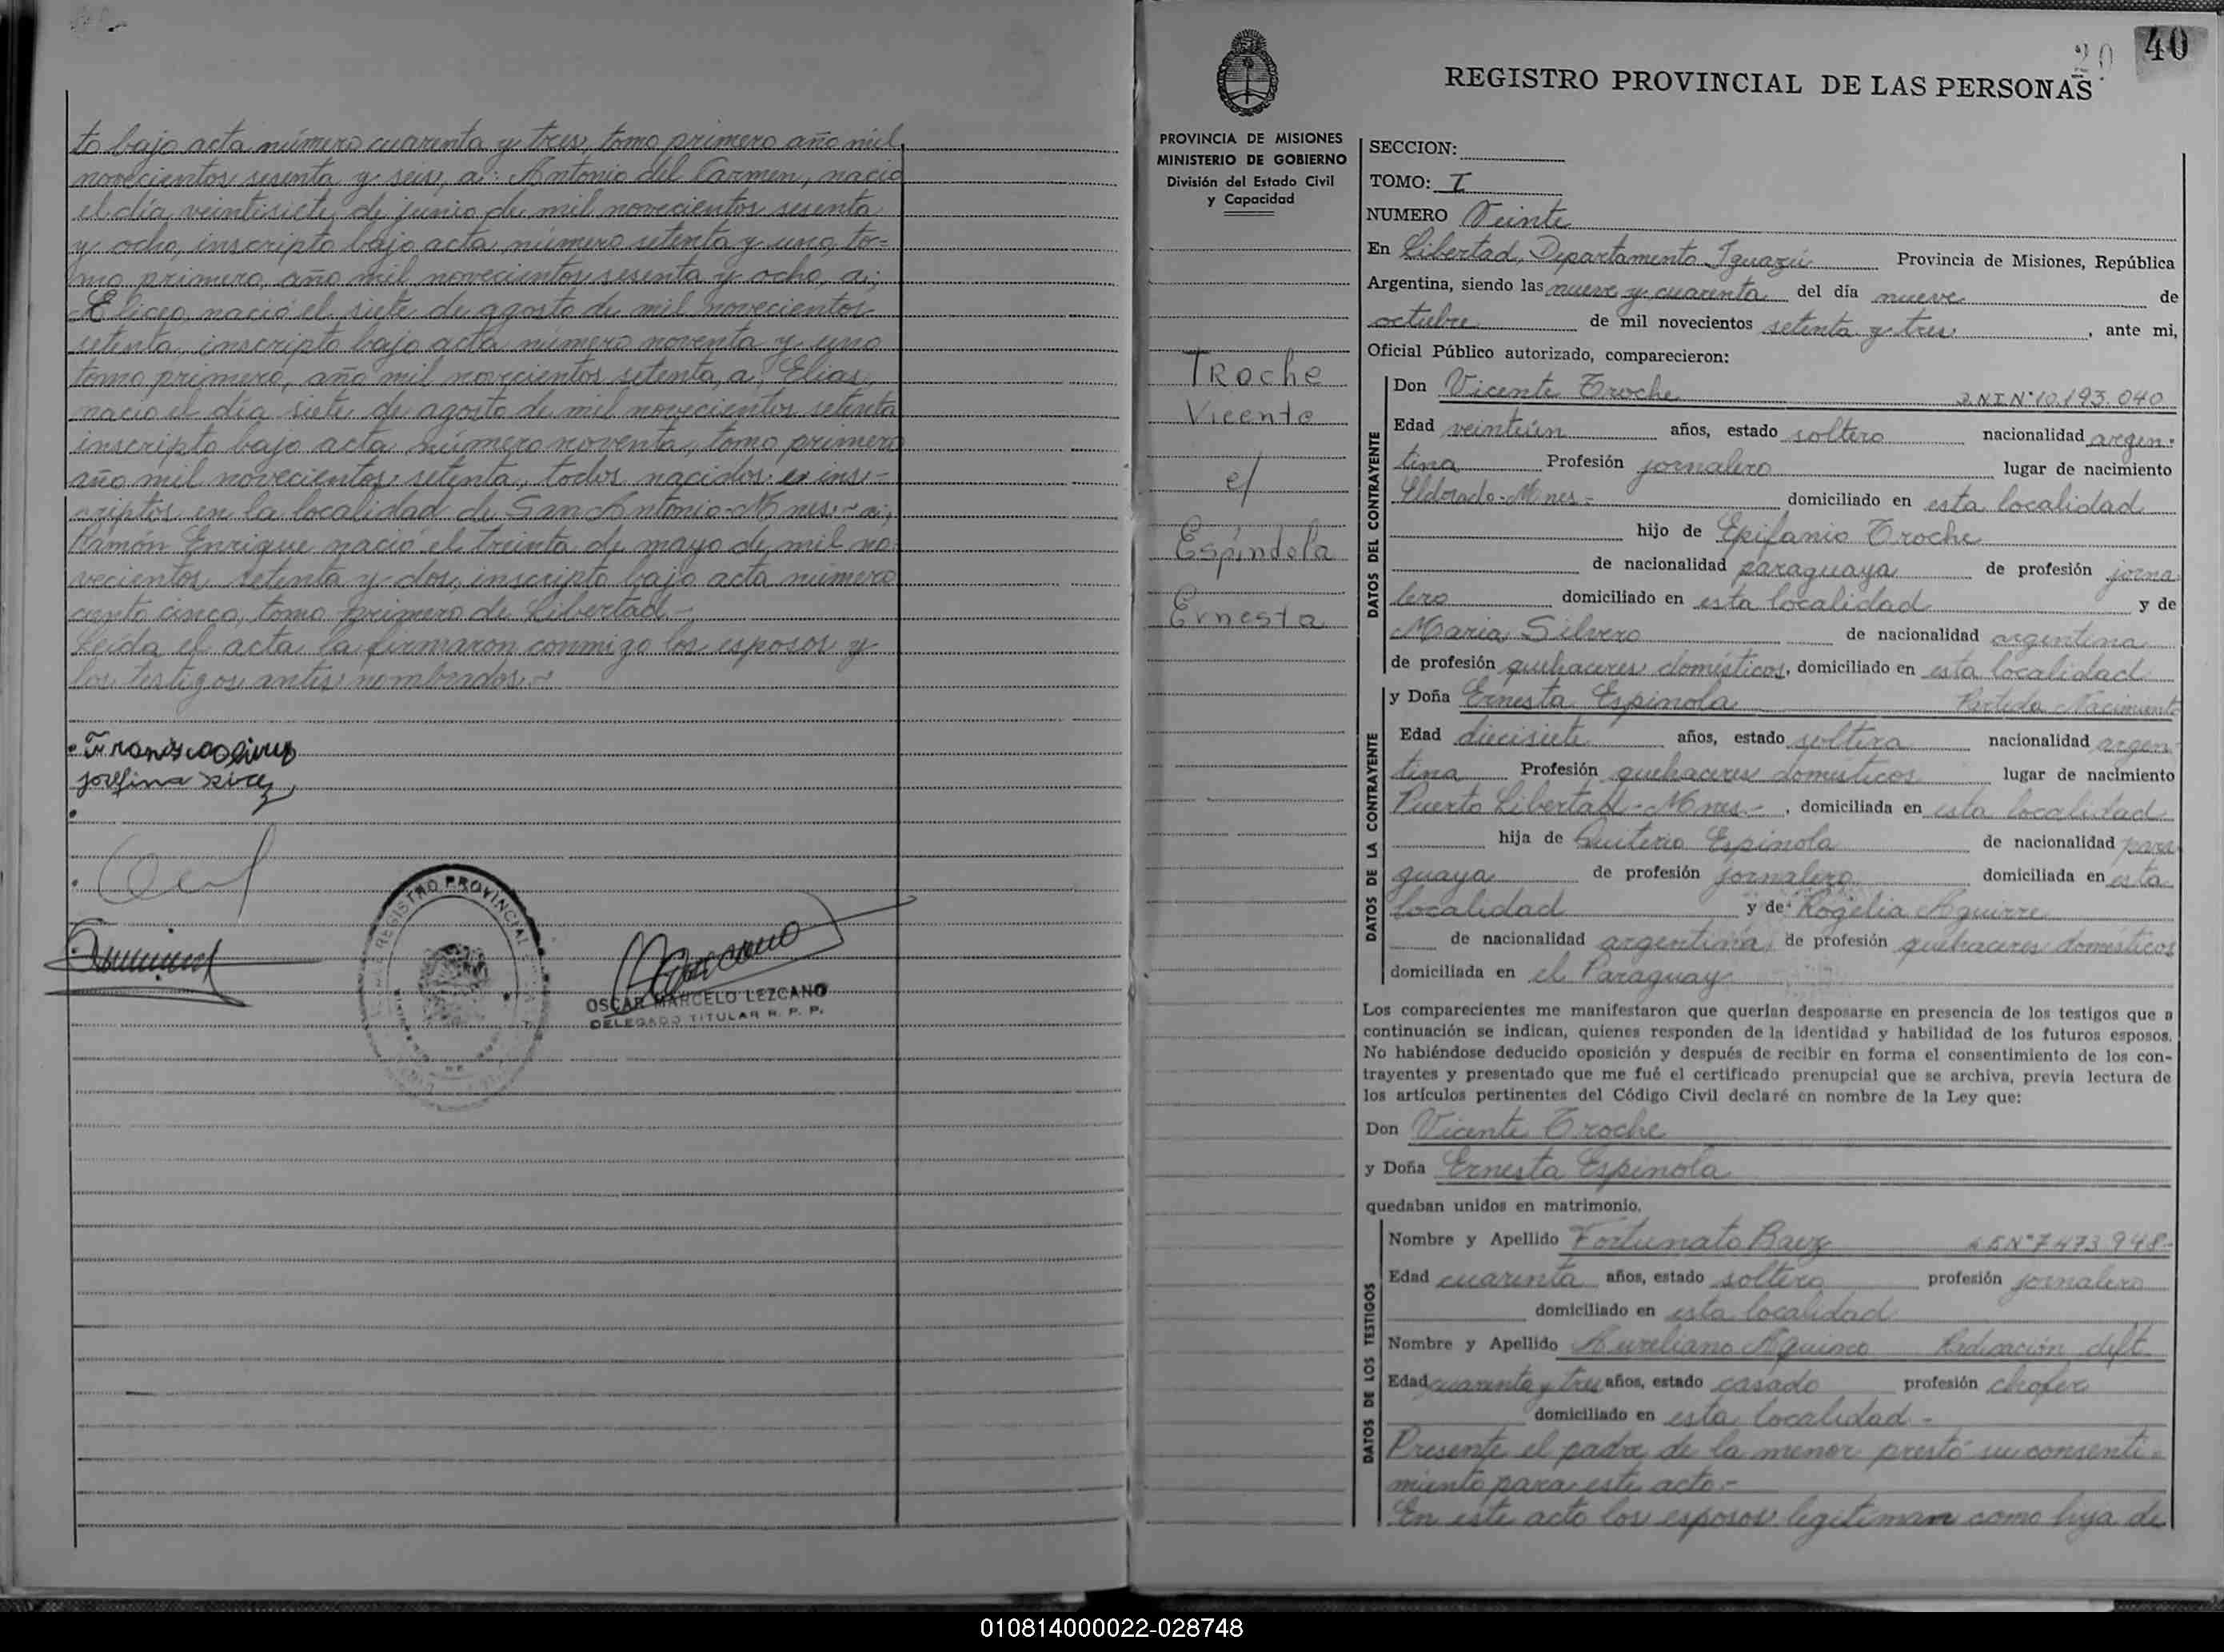 to bajo acta número cuarenta y tres, tomo primero año mil
novecientos sesenta y seis, a: Antonio del Carmen, nació
el día veintisiete de junio de mil novecientos sesenta
y ocho, inscripto bajo acta número setenta y uno, to-
mo primero, año mil novecientos sesenta y ocho, a;
Eliceo, nació el siete de agosto de mil novecientos
setenta, inscripto bajo acta número noventa y uno
tomo primero, año mil novecientos setenta, a; Elias,
nació el día siete de agosto de mil novecientos setenta
inscripto bajo acta número noventa, tomo primero
año mil novecientos setenta, todos nacidos e ins-
criptos en la localidad de San Antonio-Mnes.- a;
Ramón Enrique nació el treinta de mayo de mil no-
vecientos setenta y dos, inscripto bajo acta número
ciento cinco, tomo primero de Libertad.-
Leída el acta la firmaron conmigo los esposos y
los testigos antes nombrados.-
REGISTRO PROVINCIAL
OSCAR MARCELO LEZCANO
DELEGADO TITULAR R. P. P.
20 40
REGISTRO PROVINCIAL DE LAS PERSONAS
PROVINCIA DE MISIONES
MINISTERIO DE GOBIERNO
División del Estado Civil
y Capacidad
Troche
Vicente
c/
Espíndola
Ernesta
SECCION:
TOMO: I
NUMERO Veinte
En Libertad, Departamento Iguazú Provincia de Misiones, República
Argentina, siendo las nueve y cuarenta del día nueve de
octubre de mil novecientos setenta y tres, ante mi,
Oficial Público autorizado, comparecieron:
DATOS DEL CONTRAYENTE
Don Vicente Troche D.N.I.Nº10.193.040
Edad veintiún años, estado soltero nacionalidad argen-
tina Profesión jornalero lugar de nacimiento
Eldorado-Mnes.- domiciliado en esta localidad
hijo de Epifanio Troche
de nacionalidad paraguaya de profesión jorna
lero domiciliado en esta localidad y de
Maria Silvero de nacionalidad argentina
de profesión quehaceres domésticos, domiciliado en esta localidad
DATOS DE LA CONTRAYENTE
y Doña Ernesta Espinola Partida Nacimiento
Edad diecisiete años, estado soltera nacionalidad argen
tina Profesión quehaceres domesticos lugar de nacimiento
Puerto Libertad-Mnes.-, domiciliada en esta localidad
hija de Quiterio Espinola de nacionalidad para
guaya de profesión jornalero domiciliada en esta
localidad y de Rogelia Aguirre
de nacionalidad argentina, de profesión quehaceres domésticos
domiciliada en el Paraguay
Los comparecientes me manifestaron que querían desposarse en presencia de los testigos que a
continuación se indican, quienes responden de la identidad y habilidad de los futuros esposos.
No habiéndose deducido oposición y después de recibir en forma el consentimiento de los con-
trayentes y presentado que me fué el certificado prenupcial que se archiva, previa lectura de
los artículos pertinentes del Código Civil declaré en nombre de la Ley que:
Don Vicente Troche
y Doña Ernesta Espinola
quedaban unidos en matrimonio.
DATOS DE LOS TESTIGOS
Nombre y Apellido Fortunato Baez L.E.Nº7473948-
Edad cuarenta años, estado soltero profesión jornalero
domiciliado en esta localidad
Nombre y Apellido Aureliano Aquino
Edad cuarenta y tres años, estado casado profesión chofer
domiciliado en esta localidad-
Presente el padre de la menor prestó su consenti-
miento para este acto.-
En este acto los esposos legitiman como hija de
010814000022-028748